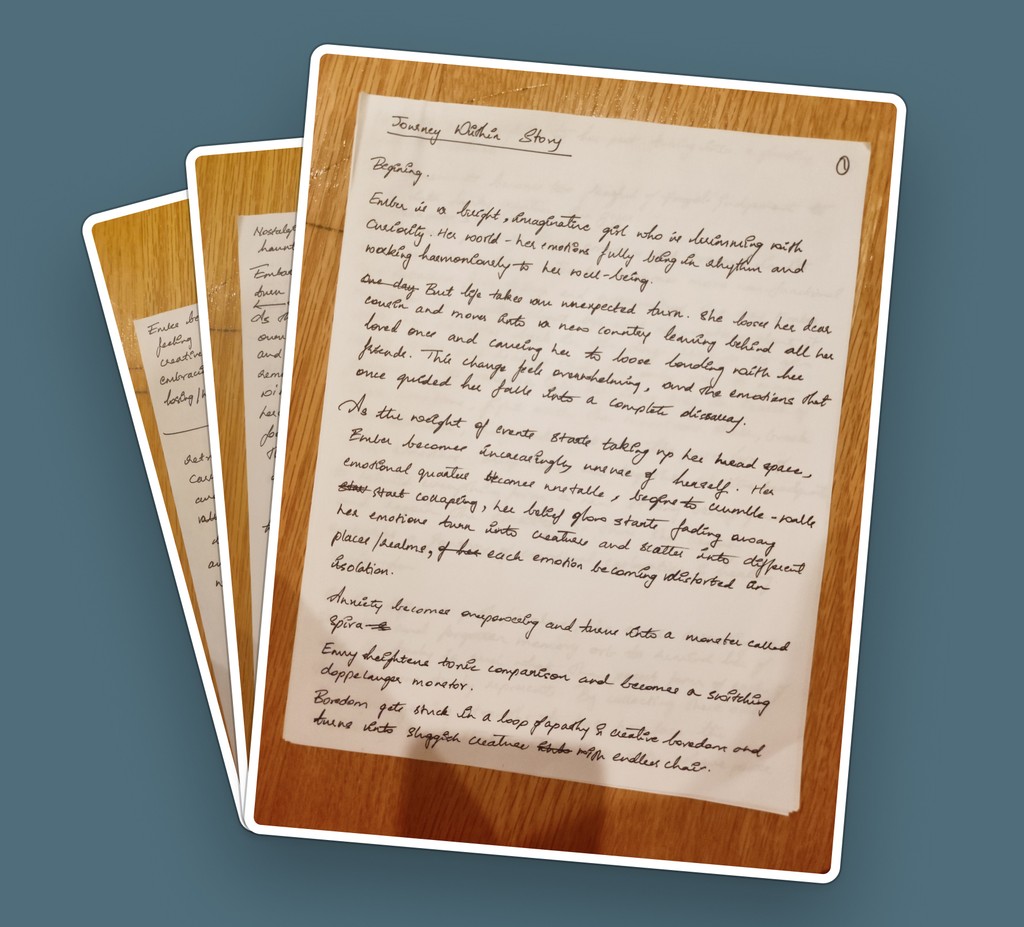 Journey Within Story
1
Begining.
Ember is a bright, imaginative girl who is brimming with
curiosity. Her world - her emotions fully being in rhythm and
working harmoniously to her well-being.
One day But life takes an unexpected turn. She loses her dear
cousin and moves into a new country leaving behind all her
loved once and causing her to loose bonding with her
friends. This change feels overwhelming, and the emotions that
once guided her falls into a complete disarray.
As the weight of events starts taking up her head space,
Ember becomes increasingly unsure of herself. Her
emotional quarters becomes unstable, begins to crumble - walls
start collapsing, her belief glows starts fading away
her emotions turn into creatures and scatter into different
places/realms, of her each emotion becoming distorted in
isolation.
Anxiety becomes overpowering and turns into a monster called
Spira
Envy heightens toxic comparison and becomes a switching
doppelanger monster.
Boredom gets stuck in a loop of apathy & creative boredom and
turns into sluggish creature into with endless chair.
Nostalg
haunt
Embar
turn
As th
and
her
Ember be
feeling
creative
embraci
losing/